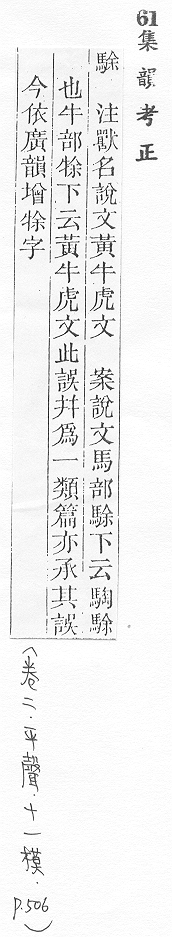 61集韻考正
駼 注獸名說文黃牛虎文 案說文馬部駼下云騊駼
也牛部㻌下云黃牛虎文此誤幷爲一類篇亦承其誤
今依廣韻增㻌字
(卷二.平聲.十一模.p.506)